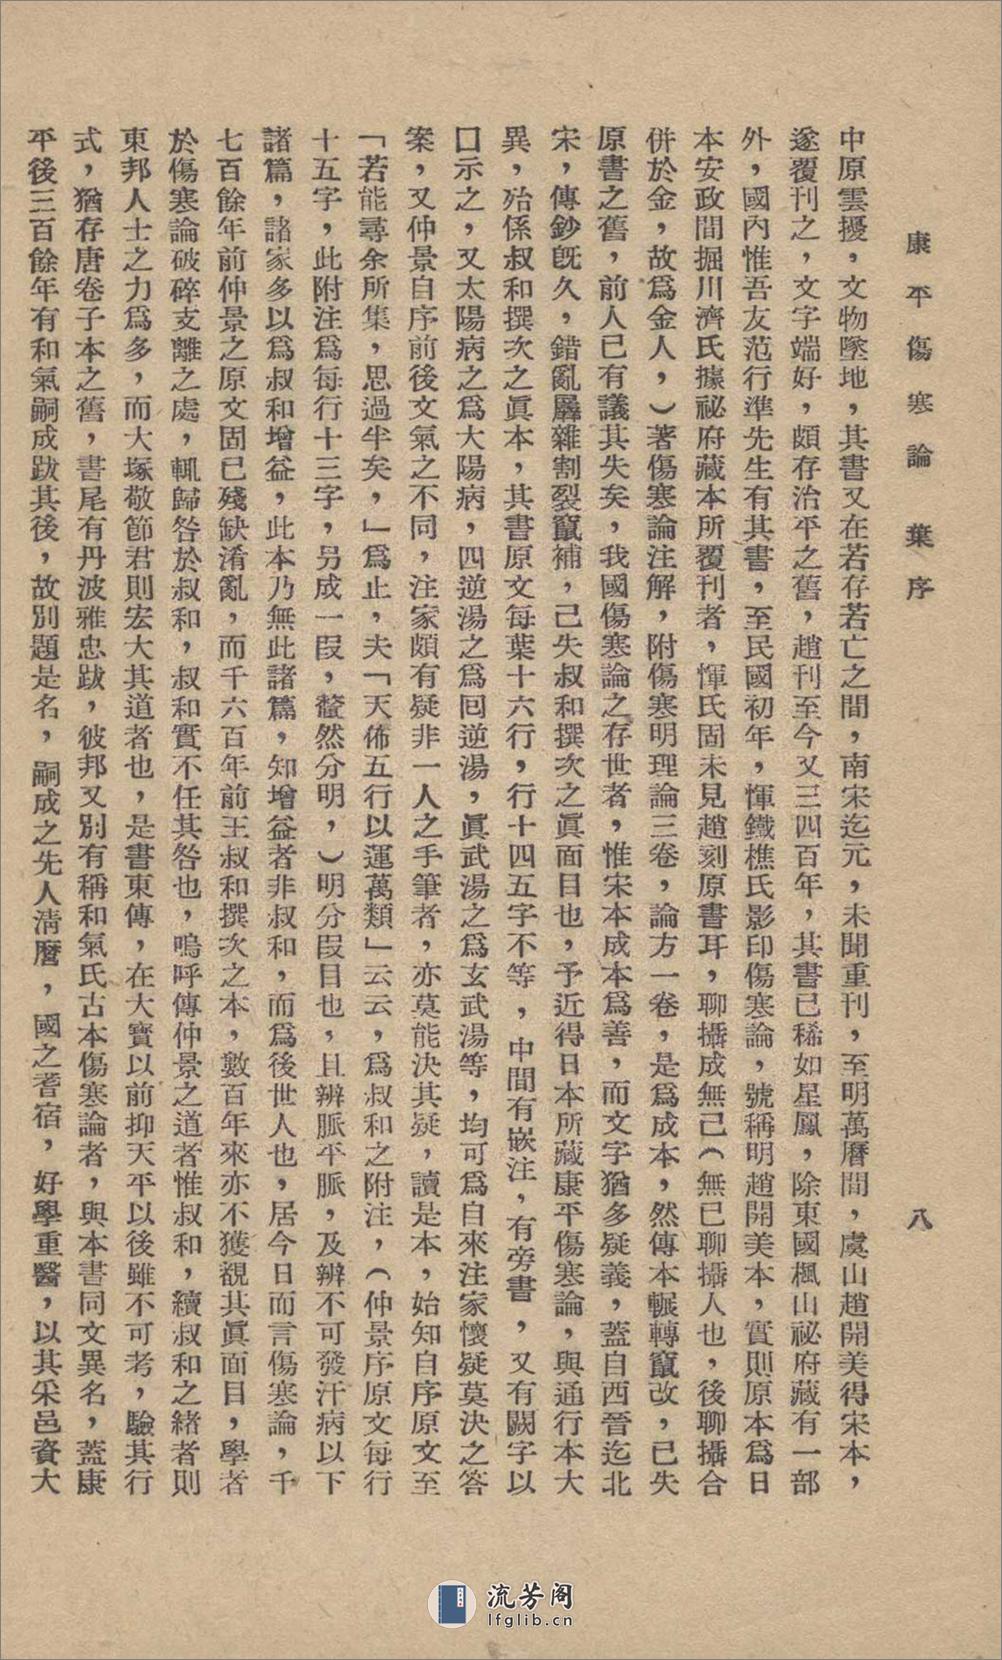 康平傷寒論　葉序　八
中原雲擾，文物墜地，其書又在若存若亡之間，南宋迄元，未聞重刊，至明萬曆間，虞山趙開美得宋本，
遂覆刊之，文字端好，頗存治平之舊，趙刊至今又三四百年，其書已稀如星鳳，除東國楓山祕府藏有一部
外，國內惟吾友范行準先生有其書，至民國初年，惲鐵樵氏影印傷寒論，號稱明趙開美本，實則原本為日
本安政間掘川濟氏據祕府藏本所覆刊者，惲氏固未見趙刻原書耳，聊攝成無己（無已聊攝人也，後聊攝合
併於金，故為金人，）著傷寒論注解，附傷寒明理論三卷，論方一卷，是為成本，然傳本輾轉竄改，已失
原書之舊，前人已有議其失矣，我國傷寒論之存世者，惟宋本成本為善，而文字猶多疑義，蓋自西晉迄北
宋，傳鈔既久，錯亂羼雜割裂竄補，已失叔和撰次之真面目也，予近得日本所藏康平傷寒論，與通行本大
異，殆係叔和撰次之眞本，其書原文每葉十六行，行十四五字不等，中間有嵌注，有旁書，又有闕字以
囗示之，又太陽病之為大陽病，四逆湯之為回逆湯，眞武湯之為玄武湯等，均可為自來注家懷疑莫決之答
案，又仲景自序前後文氣之不同，注家頗有疑非一人之手筆者，亦莫能決其疑，讀是本，始知自序原文至
「若能尋余所集，思過半矣，」為止，夫「天佈五行以運萬類」云云，為叔和之附注，（仲景序原文每行
十五字，此附注為每行十三字，另成一段，釐然分明，）明分段目也，且辨脈平脈，及辨不可發汗病以下
諸篇，諸家多以為叔和增益，此本乃無此諸篇，知增益者非叔和，而為後世人也，居今日而言傷寒論，千
七百餘年前仲景之原文固已殘缺淆亂，而千六百年前王叔和撰次之本，數百年來亦不獲覩其眞面目，學者
於傷寒論破碎支離之處，輒歸咎於叔和，叔和實不任其咎也，嗚呼傳仲景之道者惟叔和，續叔和之緒者則
東邦人士之力為多，而大塚敬節君則宏大其道者也，是書東傳，在大寶以前抑天平以後雖不可考，驗其行
式，猶存唐卷子本之舊，書尾有丹波雅忠跋，彼邦又別有稱和氣氏古本傷寒論者，與本書同文異名，蓋康
平後三百餘年有和氣嗣成跋其後，故別題是名，嗣成之先人清曆，國之耆宿，好學重醫，以其采邑資大
流芳阁
lfglib.cn